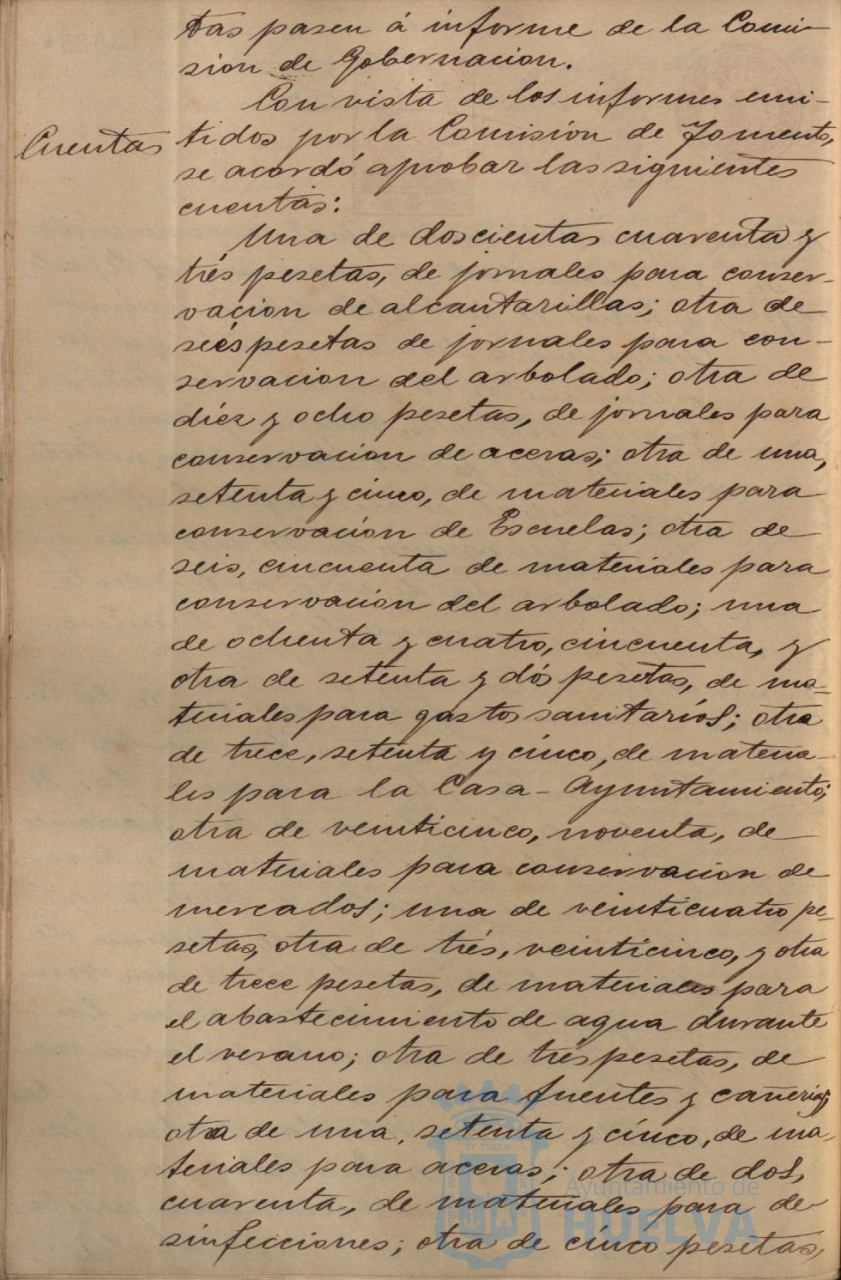 tas pasen á informe de la Comi-
sion de Gobernacion.
Con vista de los informes emi-
Cuentas
tidos por la Comisión de Fomento,
se acordó aprobar las siguientes
cuentas:
Una de doscientas cuarenta y
trés pesetas, de jornales para conser-
vacion de alcantarillas; otra de
seis pesetas de jornales para con-
servacion del arbolado; otra de
diez y ocho pesetas, de jornales para
conservacion de aceras; otra de una,
setenta y cinco, de materiales para
conservación de Escuelas; otra de
seis, cincuenta de materiales para
conservación del arbolado; una
de ochenta y cuatro, cincuenta, y
otra de setenta y dós pesetas, de ma-
teriales para gastos sanitarios; otra
de trece, setenta y cinco, de materia-
les para la Casa-Ayuntamiento;
otra de veinticinco, noventa, de
materiales para conservacion de
mercados; una de veinticuatro pe-
setas, otra de trés, veinticinco, y otra
de trece pesetas, de materiales para
el abastecimiento de agua durante
el verano; otra de trés pesetas, de
materiales para fuentes y cañerias;
otra de una, setenta y cinco, de ma-
teriales para aceras; otra de dos,
cuarenta, de materiales para de
sinfecciones; otra de cinco pesetas,
Ayuntamiento de
HUELVA